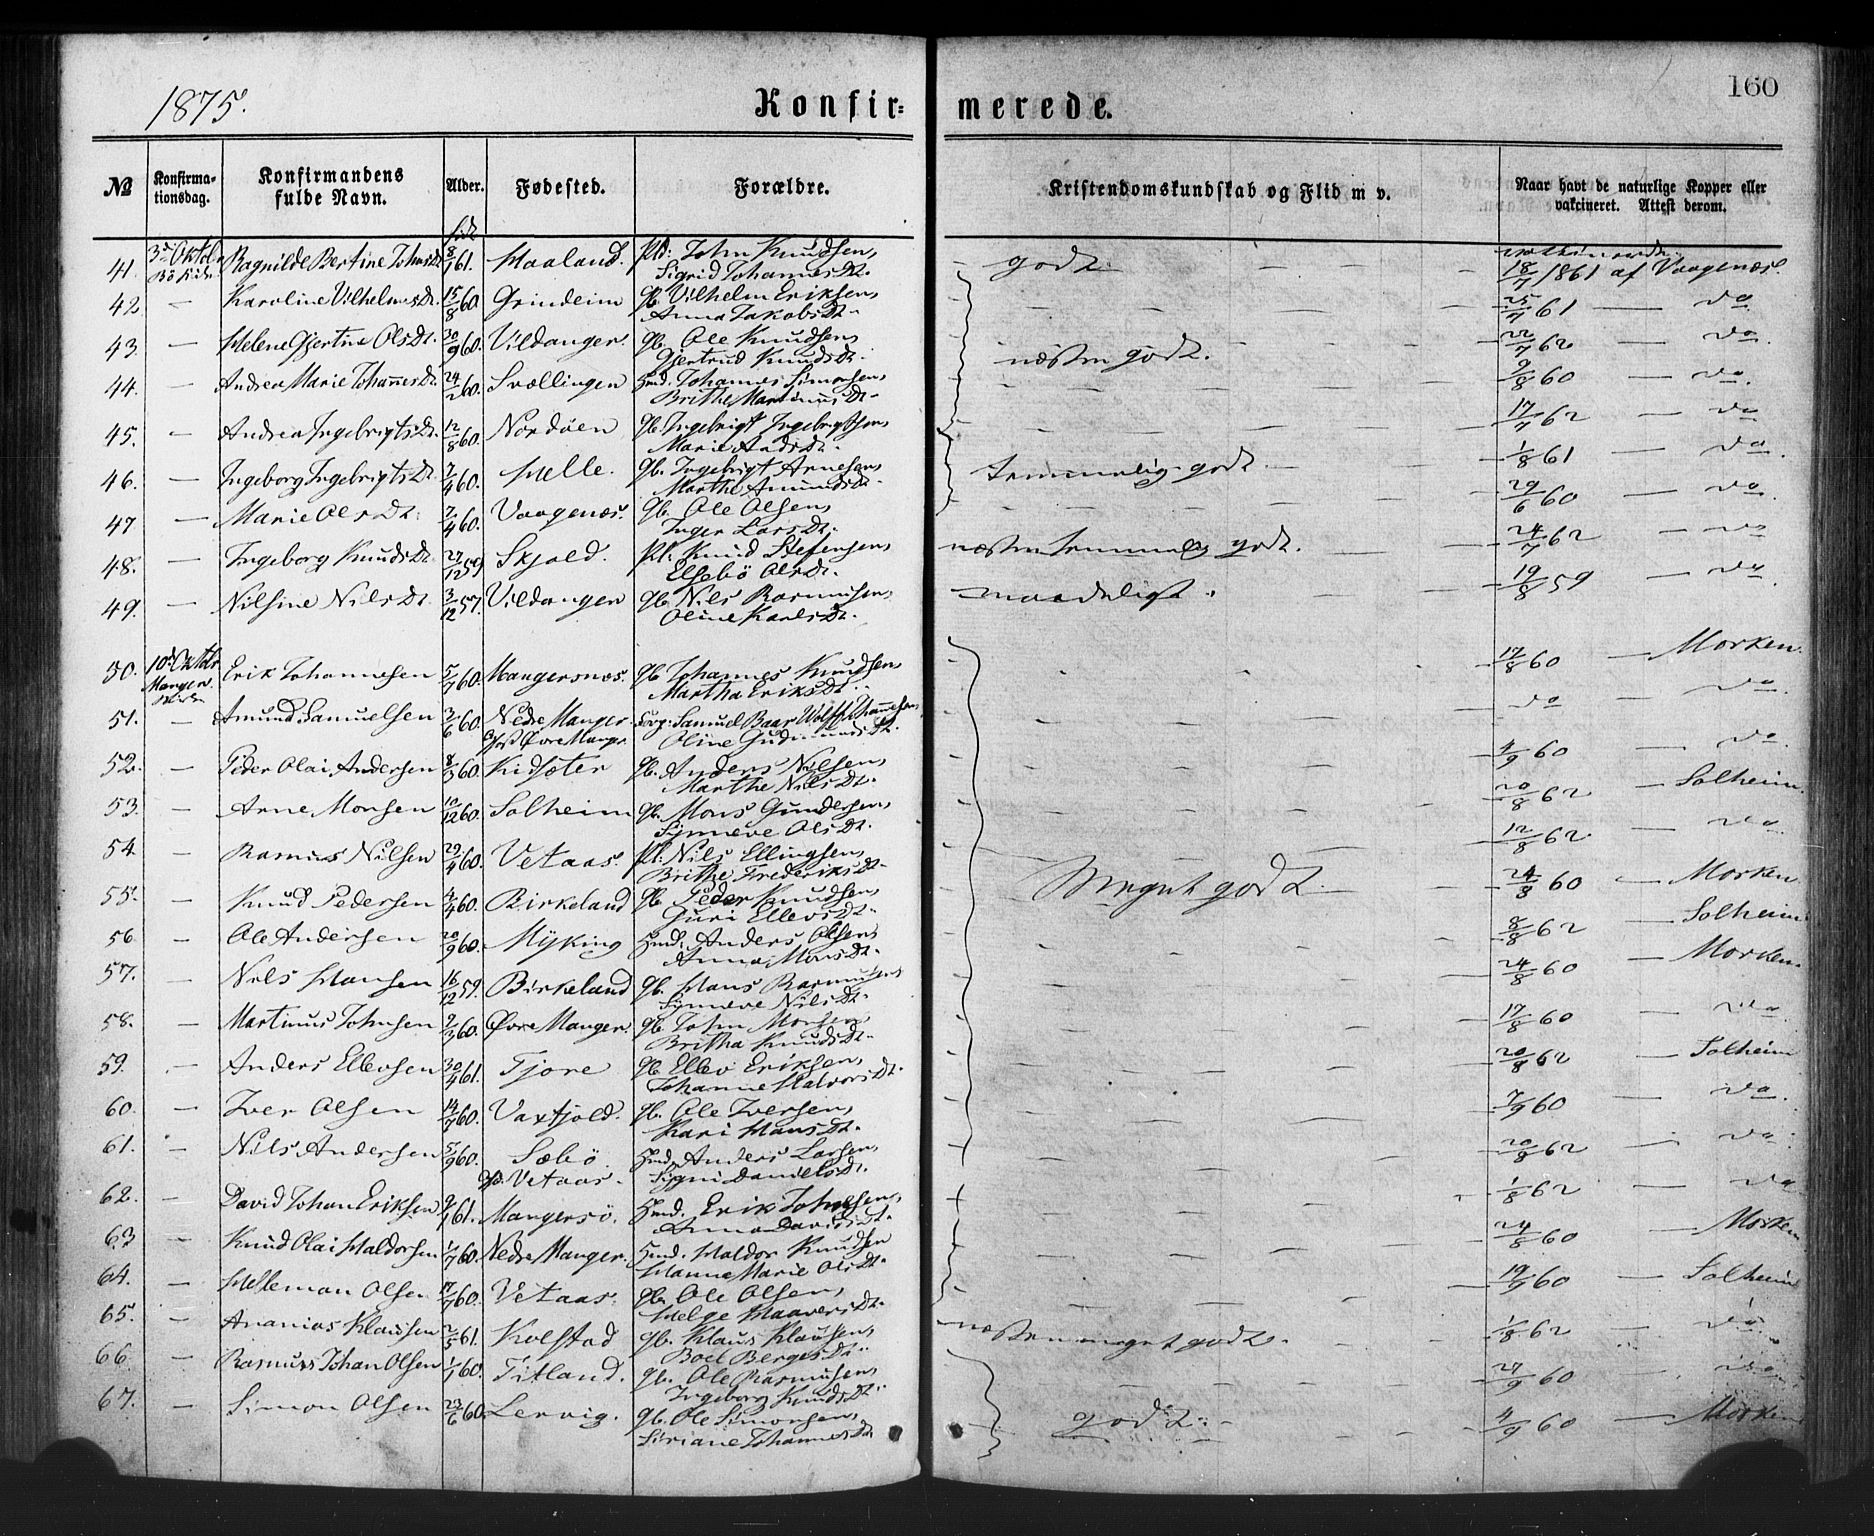 1875.
Konfir=
merede.
160
№
Konfirma-
tionsdag.
Konfirmandens
fulde Navn.
Alder.
Fødested.
Forældre.
Kristendomskundskab og Flid m v.
Naar havt de naturlige Kopper eller
vakcineret. Attest derom.
41. 3d Oktob. Ragnilde Bertine JohnsDt. 8/1 61. Haaland. Pld: John Knudsen, godt
Bö Kirke Sigrid JohannesDt. 18/7 1861 af Vaagenæs.
42. — Karoline VilhelmsDt. 15/8 60 Grindeim gb. Vilhelm Eriksen, 25/7 61 — do
Anna JakobsDt.
43. — Helene Gjertine OlsDt. 30/9 60. Vildanger. gb. Ole Knudsen, næsten godt. 22/7 62 — do.
Gjertrud KnudsDt.
44. — Andrea Marie JohannesDt. 24/2 60. Svællingen Hmd. Johannes Simonsen, 9/8 60 — do.
Brithe MartinusDt.
45. — Andrea IngebrigtsDt. 12/8 60. Nordøen gb. Ingebrigt Ingebrigtsen, 17/7 62 — do
Marie AndsDt.
46. — Ingeborg IngebrigtsDt. 7/4 60. Helle. gb. Ingebrigt Arnesen, temmelig godt. 1/8 61 — do
Marthe AmundsDt.
47 — Marie OlsDt. 7/4 60. Vaagenæs. gb. Ole Olsen, 29/6 60 — do.
Inger LarsDt.
48. — Ingeborg KnudsDt. 27/12 59 Skjold. Pl: Knud Stefensen, næsten temmelig godt. 24/7 62 — do
Elsebö OlsDt.
49. — Nilsine NilsDt. 3/12 57. Vildanger gb. Nils Rasmusen, maadeligt. 19/8 59 — do.
Oline KarlsDt.
50. 10d Oktbr Erik Johannesen 5/7 60. Mangersnæs. gb Johannes Knudsen, 17/8 60 — Morken.
Manger Kirke Martha EriksDt.
51. — Amund Samuelsen 3/6 60. Nedre Manger Sorg: Samuel Baar Wolff Johannesen, do — do.
Øvre Mang. Oline GudmundsDt.
52. — Peder Olai Andersen 8/3 60. Kidsæter gb. Anders Nilsen, 4/9 60 — do.
Marthe NilsDt.
53. — Arne Monsen 10/12 60. Solheim gb. Mons Gundersen, 20/8 62 — Solheim.
Synneve OlsDt.
54. — Rasmus Nilsen 29/4 60. Vetaas. Pl: Nils Ellingsen, 12/8 62 — do
Brithe FrederiksDt.
55. — Knud Pedersen 4/4 60. Birkeland gb. Peder Knudsen, Meget godt. 24/8 60 — Morken
Guri EllevsDt.
56. — Ole Andersen 20/9 60. Myking Hmd. Anders Olsen, 8/8 62 — Solheim
Anna MonsDt.
57. — Nils Hansen 16/12 59. Birkeland gb. Hans Rasmusen 24/8 60 — Morken.
Synneve NilsDt.
58. — Martinus Johnsen 9/3 60. Øvre Manger. gb. John Monsen, 17/8 60 — do
Britha KnudsDt.
59. — Anders Ellevsen 30/4 61. Tjore gb. Ellev Eriksen, 20/8 62 — Solheim
Johanne HalvorsDt.
60. — Iver Olsen 14/7 60. Vaxtjold. gb. Ole Iversen, 7/9 60 — do
Kari HansDt.
61. — Nils Andersen 5/9 60. Sæbö Hmd. Anders Larsen, 20/8 62 — do
Vetaas. Signi DanielsDt.
62. — David Johan Eriksen 9/1 61. Mangersö. Hmd. Erik Johnsen, 1/8 62 — do
Anna DavidsDt.
63 — Knud Olai Haldorsen 1/7 60. Nedre Manger. Hmd. Haldor Knudsen 24/8 60 — Morken
Hanna Marie OlsDt.
64. — Helleman Olsen 17/7 60. Vetaas gb. Ole Olsen, 19/9 60 — Solheim
Helge HaaversDt.
65. — Ananias Klausen 2/5 61. Kolstad gb. Klaus Klausen, næsten meget godt. 1/8 62 — do
Boel BergesDt.
66 — Rasmus Johan Olsen 1/1 60. Titland. gb. Ole Rasmusen, 27/9 60 — do
Ingeborg KnudsDt.
67. — Simon Olsen 23/6 60. Lervig. gb. Ole Simonsen, godt. 4/9 60 — Morken
Siriane JohannesDt